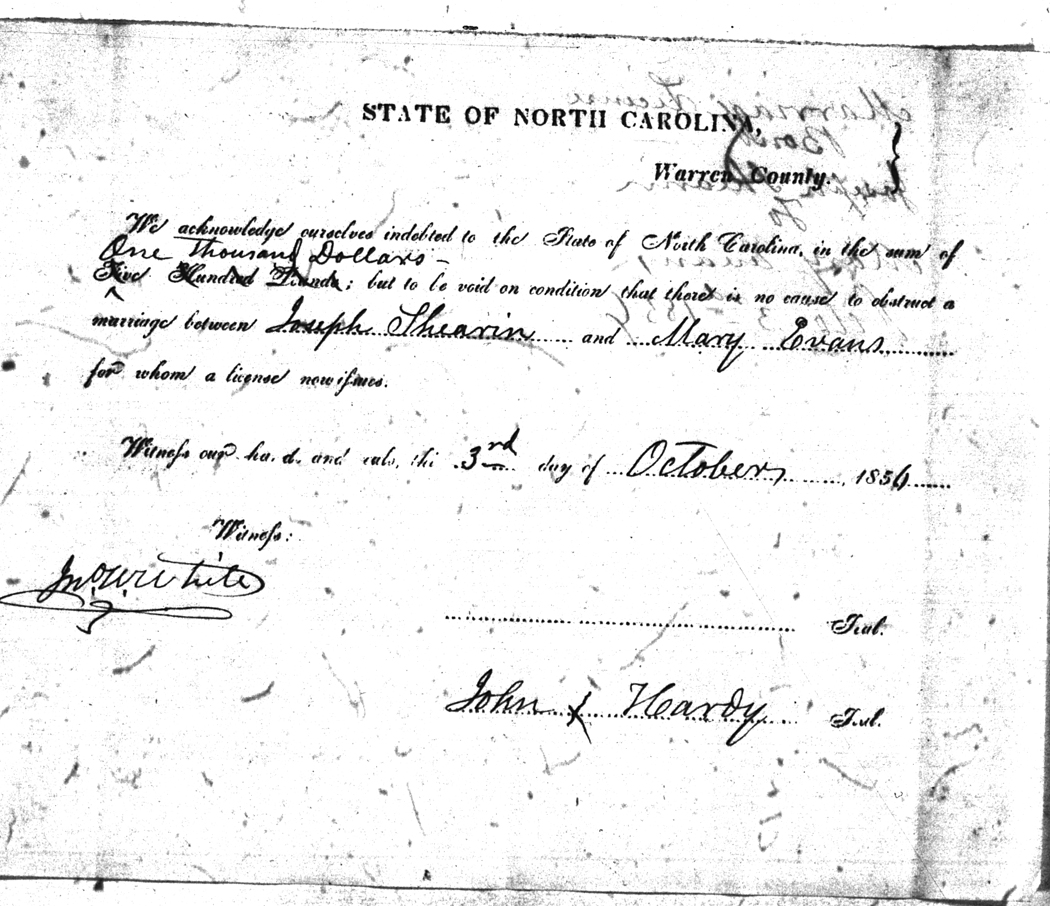 STATE OF NORTH CAROLINA,
Warren County.
We acknowledge ourselves indebted to the State of North Carolina, in the sum of
One Thousand Dollars –
Five Hundred Pounds; but to be void on condition that there is no cause to obstruct a
marriage between Joseph Shearin and Mary Evans
for whom a license now issues.
Witness our ha.d. and eals, the 3rd day of October, 1856
Witness:
Jno W White
Seal.
John X Hardy Seal.